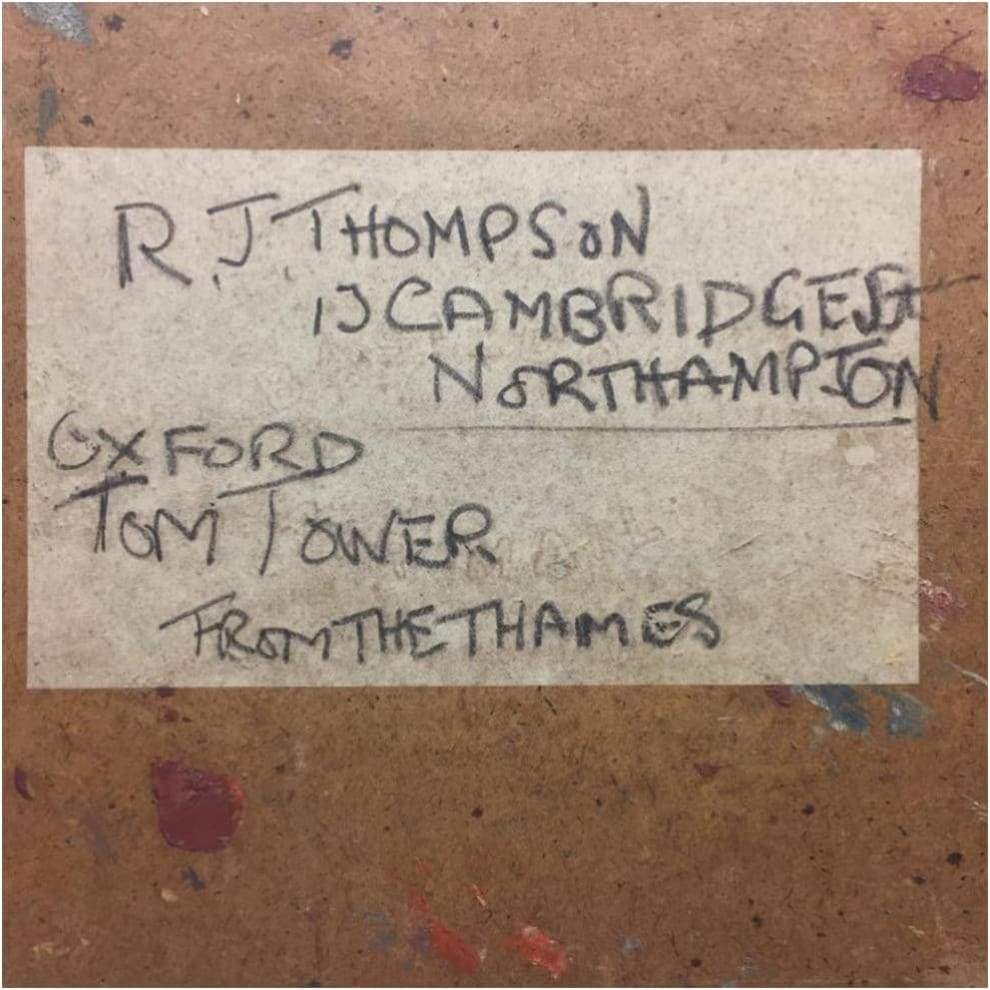 R.J. THOMPSON
13 CAMBRIDGE ST
NORTHAMPTON
OXFORD
TOM TOWER
FROM THE THAMES